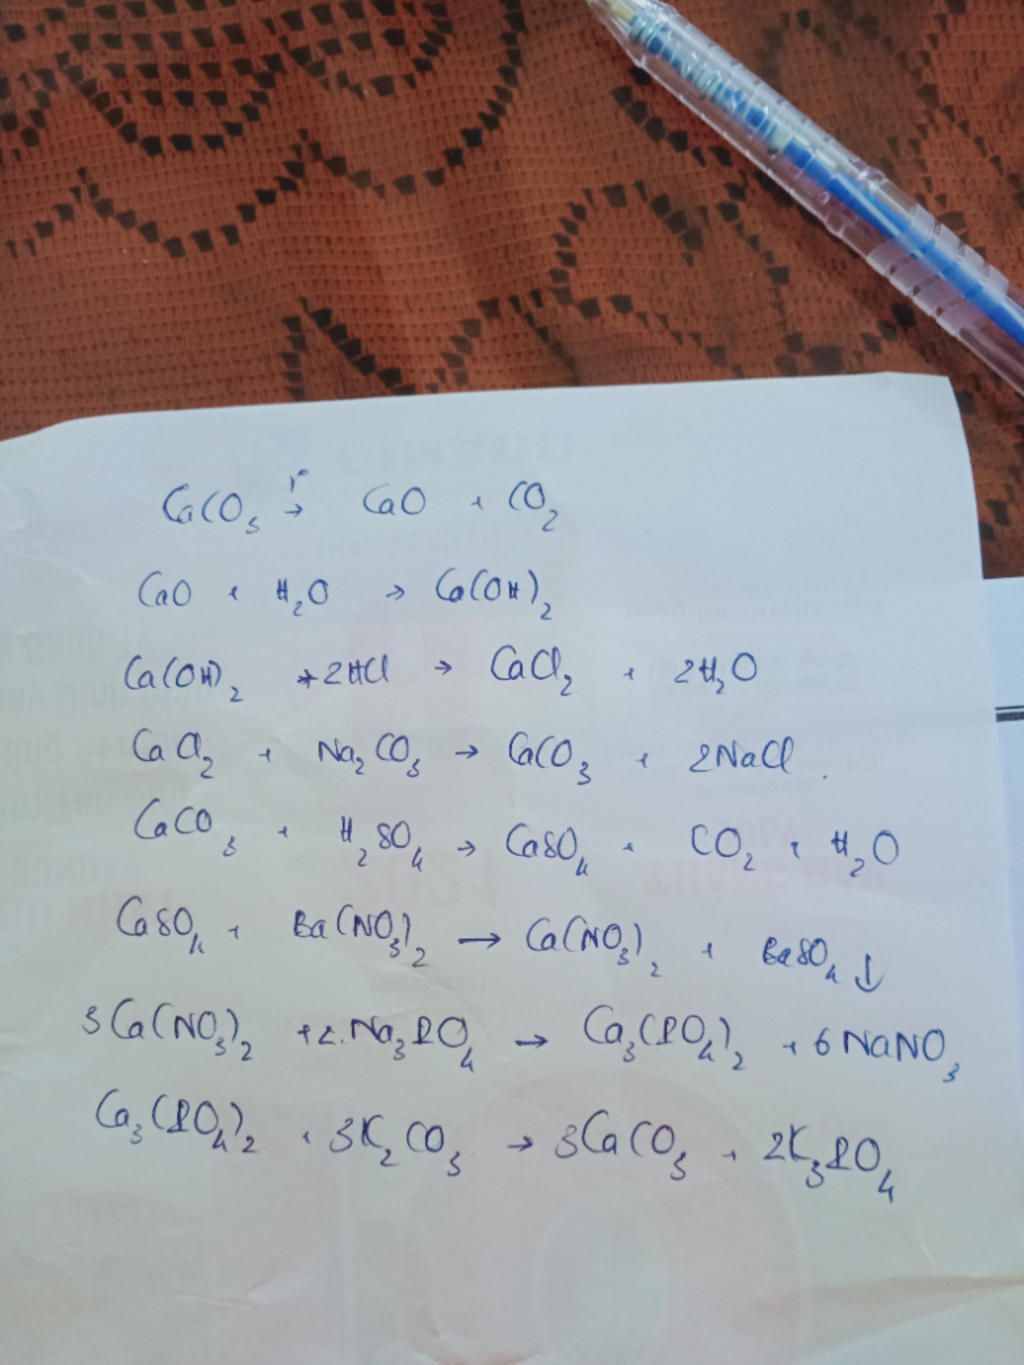 CaCO₃ →t° CaO + CO₂
CaO + H₂O → Ca(OH)₂
Ca(OH)₂ + 2HCl → CaCl₂ + 2H₂O
CaCl₂ + Na₂CO₃ → CaCO₃ + 2NaCl.
CaCO₃ + H₂SO₄ → CaSO₄ + CO₂ + H₂O
CaSO₄ + Ba(NO₃)₂ → Ca(NO₃)₂ + BaSO₄ ↓
3Ca(NO₃)₂ + 2.Na₃PO₄ → Ca₃(PO₄)₂ + 6NaNO₃
Ca₃(PO₄)₂ + 3K₂CO₃ → 3CaCO₃ + 2K₃PO₄